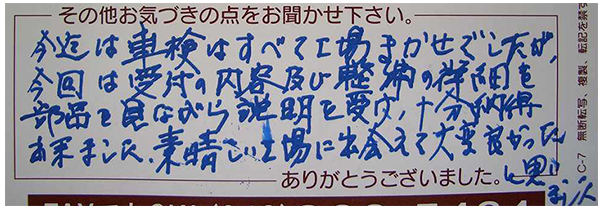 その他お気づきの点をお聞かせ下さい。
今迄は車検はすべて工場まかせでしたが、
今回は受付の内容及び整備の詳細を
部品を見ながら説明を受け、十分納得
出来ました、素晴しい工場に出会えて大変良かった
と思
ありがとうございました。
C-7 無断転写、複製、転記を禁